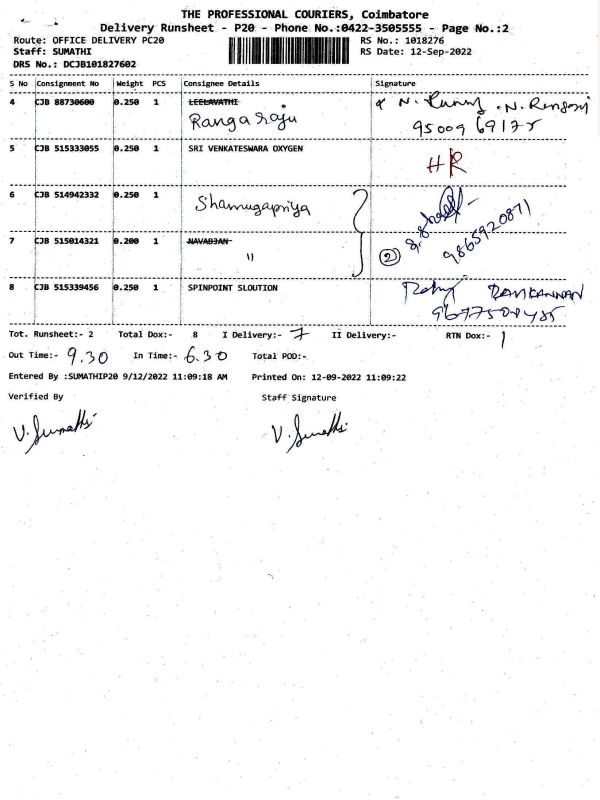 THE PROFESSIONAL COURIERS, Coimbatore
Delivery Runsheet - P20 - Phone No.:0422-3505555 - Page No.:2
Route: OFFICE DELIVERY PC20 RS No.: 1018276
Staff: SUMATHI RS Date: 12-Sep-2022
DRS No.: DCJB101827602
S No Consignment No Weight PCS Consignee Details Signature
4 CJB 88730600 0.250 1 LEELAVATHI
Rangaraju
95009 69175
5 CJB 515333055 0.250 1 SRI VENKATESWARA OXYGEN
HR
6 CJB 514942332 0.250 1 Shamugapriya
9865920871
7 CJB 515014321 0.200 1 NAVABJAN
" 2
8 CJB 515339456 0.250 1 SPINPOINT SLOUTION
Tot. Runsheet:- 2 Total Dox:- 8 I Delivery:- 7 II Delivery:- RTN Dox:- 1
Out Time:- 9.30 In Time:- 6.30 Total POD:-
Entered By :SUMATHIP20 9/12/2022 11:09:18 AM Printed On: 12-09-2022 11:09:22
Verified By Staff Signature
V. Sumathi V. Sumathi